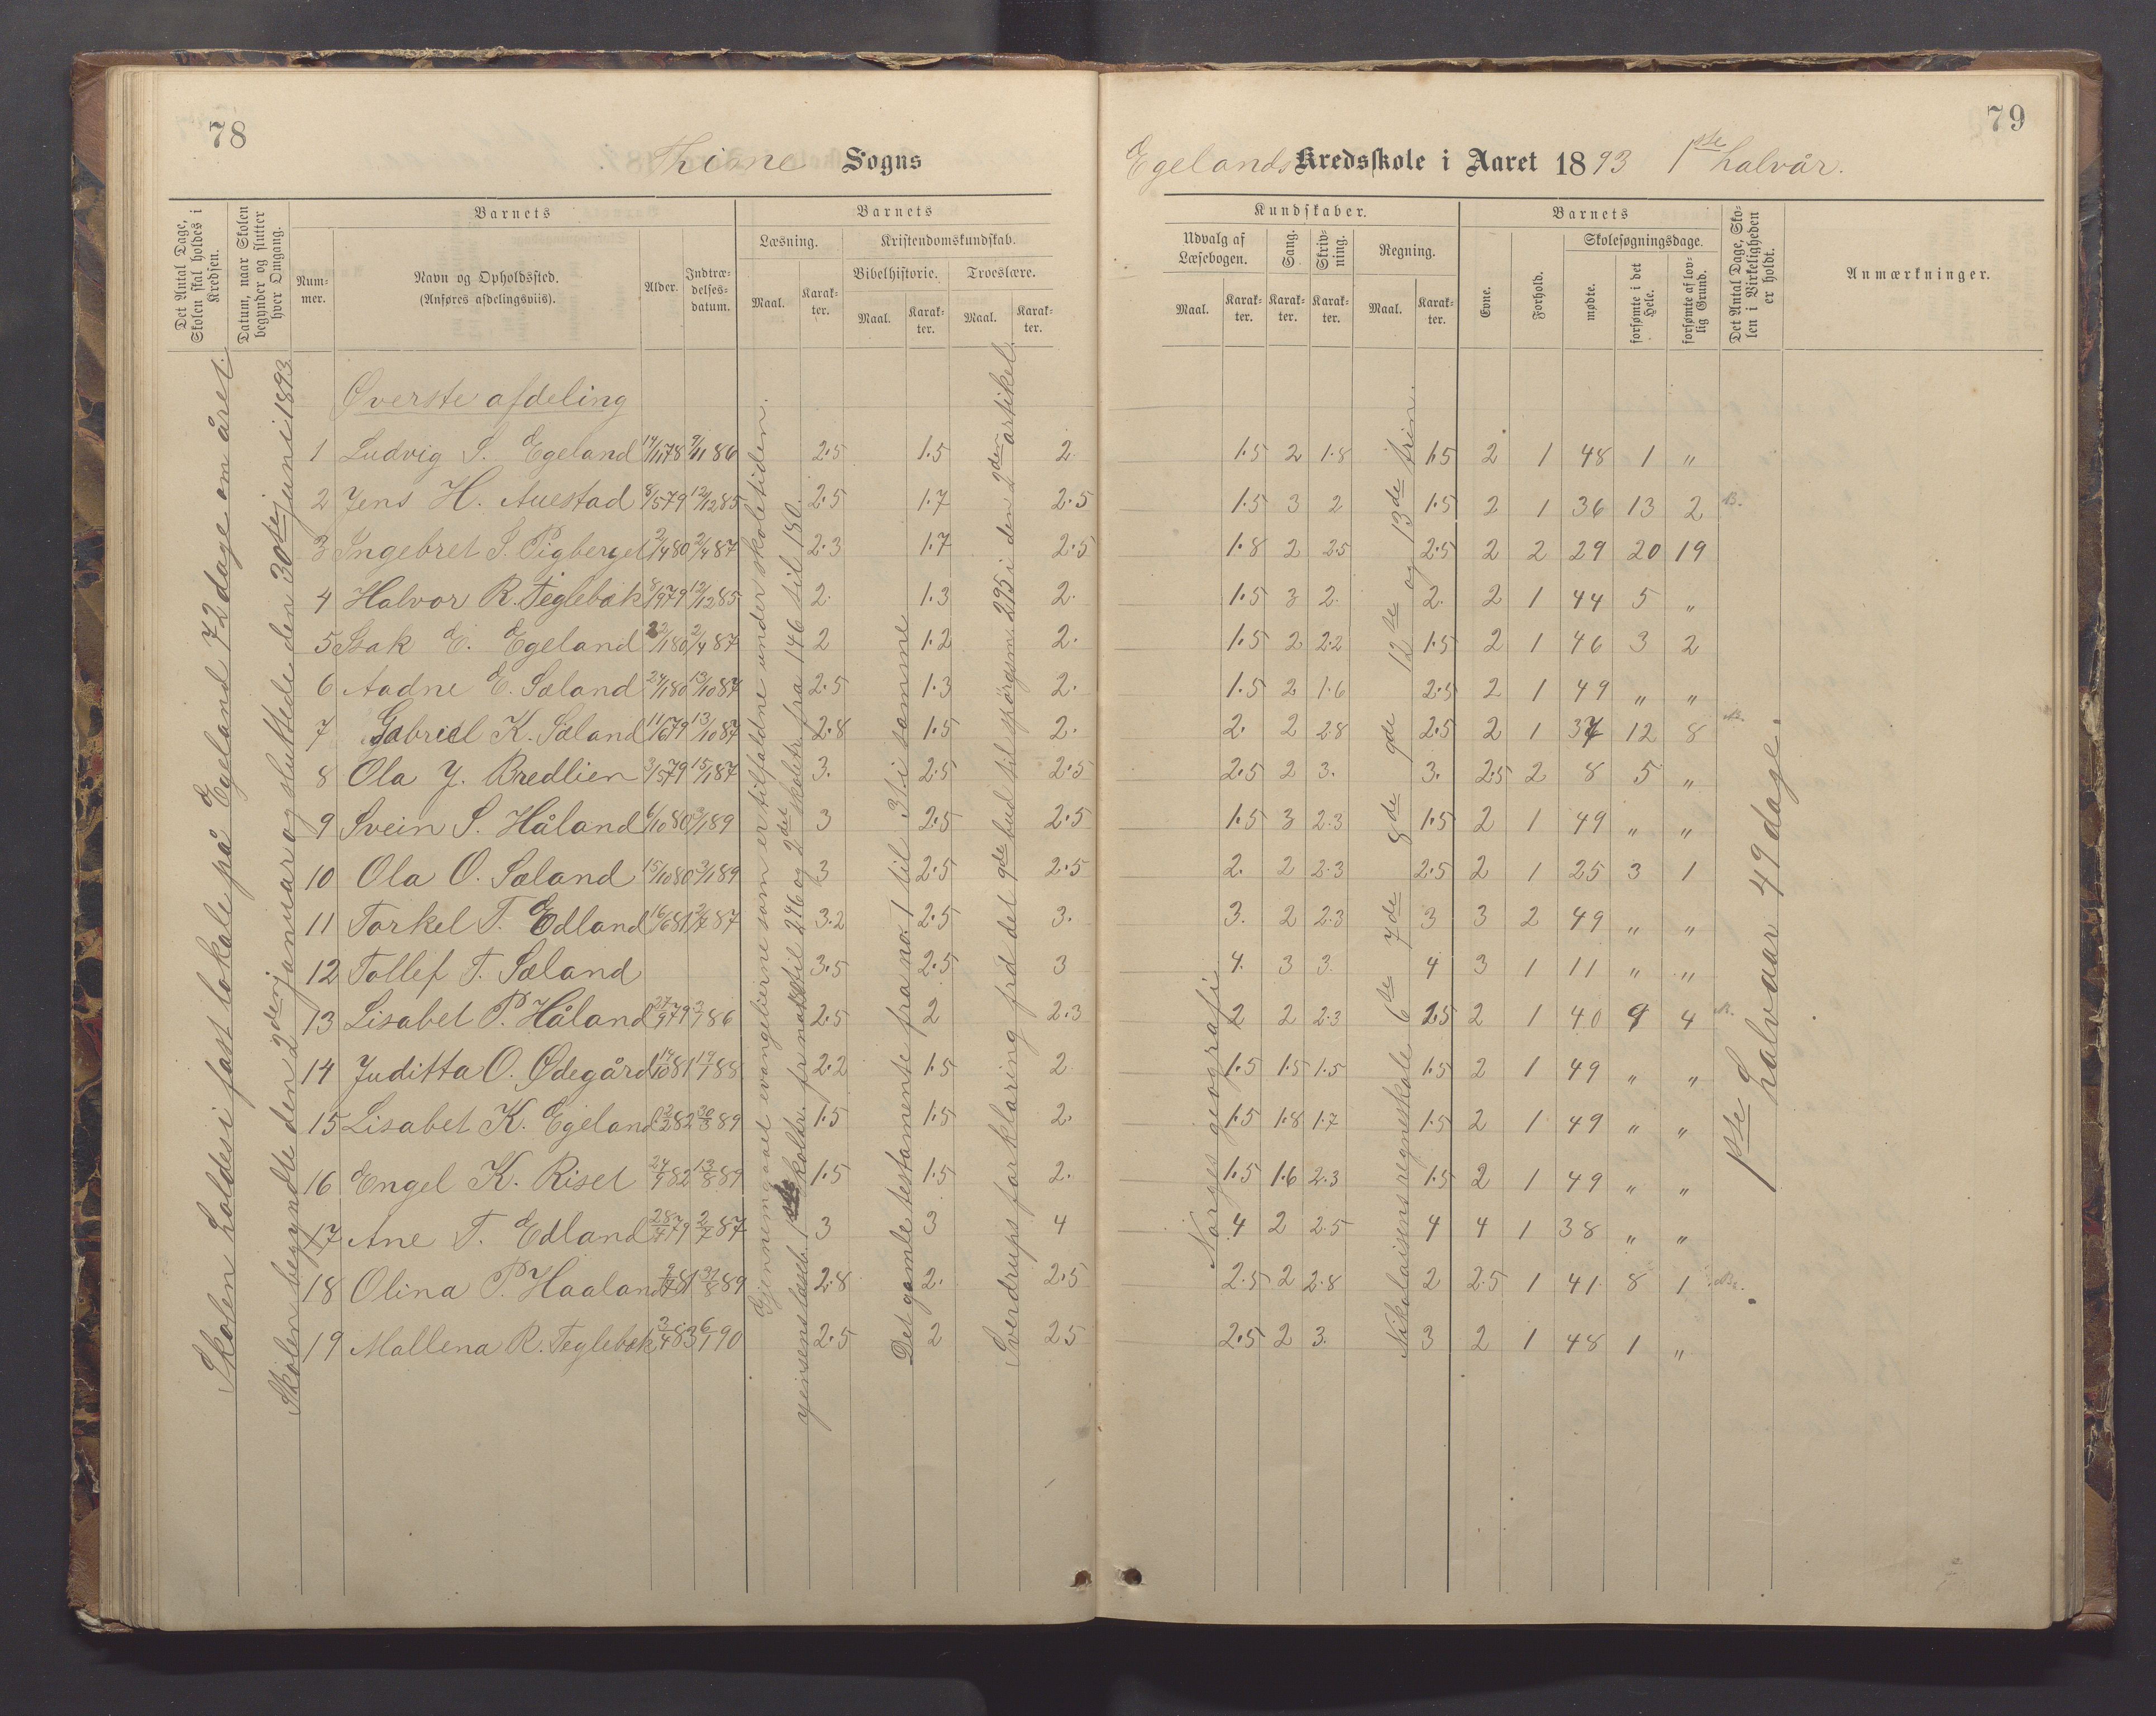 78
Thime Sogns
Det Antal Dage, Skolen skal holdes i Kredsen.
Datum, naar Skolen begynder og slutter hver Omgang.
Barnets
Barnets
Num-mer.
Navn og Opholdssted.
(Anføres afdelingsviis).
Alder.
Indtræ-delses-datum.
Læsning.
Kristendomskundskab.
Bibelhistorie.
Troeslære.
Maal.
Karak-ter.
Maal.
Karak-ter.
Maal.
Karak-ter.
Skolen holdes i fast lokale på Egeland 72 dage om året.
Skolen begyndte den 2den januar og sluttede den 30te juni 1893
Gjennemgaaet evangelierne som er tilfaldne under skoletiden.
Det gamle testamente fra no. 1 til 31. i samme
Svendrups forklaring fra det 9de bud til spörgsm. 295 i den 2den artikel.
Øverste afdeling
1 Ludvig S. Egeland 2.5 1.5 2
2 Jens H. Auestad 8/5 79 12/12 85 2.5 1.7 2.5
3 Ingebret S. Pigberget 2/4 87 2.3 1.7 2.5
4 Halvor R. Teglebak 8/9 79 12/12 85 2. 1.3 2.
5 Isak E. Egeland 2/4 87 2 1.2 2.
6 Aadne E. Sæland 13/10 87 2.5 1.3 2.
7 Gabriel K. Sæland 11/6 79 13/10 87 2.8 1.5 2.
8 Ola J. Bredlien 3/5 79 15/1 87 3. 2.5 2.5
9 Svein S. Håland 6/10 80 3/1 89 3 2.5 2.5
10 Ola O. Sæland 15/10 80 3/1 89 3 2.5 2.5
11 Torkel T. Edland 16/6 81 2/7 87 3.2 2.5 3.
12 Tollef T. Sæland 3.5 2.5 3
13 Lisabet P. Håland 27/9 79 2.5 2 2.3
14 Juditta O. Ødegård 14/10 81 2.2 1.5 2
15 Lisabet K. Egeland 1.5 1.5 2.
16 Engel K. Riset 24/9 82 13/8 89 1.5 1.5 2.
17 Ane T. Edland 28/4 79 2/7 87 3 3 4
18 Olina P. Haaland 2.8 2. 2.5
19 Mallena R. Teglebak 3/4 83 6/1 90 2.5 2 25
79
Egelands Kredsskole i Aaret 1893 1ste halvår.
Kundskaber.
Barnets
Udvalg af Læsebogen.
Sang.
Skriv-ning.
Regning.
Evne.
Forhold.
Skolesøgningsdage.
Det Antal Dage, Sko-len i Virkeligheden er holdt.
Anmærkninger.
Maal.
Karak-ter.
Karak-ter.
Karak-ter.
Maal.
Karak-ter.
mødte.
forsømte i det Hele.
forsømte af lov-lig Grund.
Norges geografi
Nikolaisens regneskole 6te 7de 8de 9de 12te og 13de trin.
1ste halvaar 49 dage.
1.5 2 1.8 1.5 2 1 48 1 "
1.5 3 2 1.5 2 1 36 13 2
1.8 2 25 2.5 2 2 29 20 19
1.5 3 2. 2. 2 1 44 5 "
1.5 2 2.2 1.5 2 1 46 3 2
1.5 2 1.6 2.5 2 1 49 " "
2. 2 2.8 2.5 2 1 37 12 8
2.5 2 3. 3. 2.5 2 8 5 "
1.5 3 2.3 1.5 2 1 49 " "
2. 2 2.3 2.5 2 1 25 3 1
3. 2 2.3 3 3 2 49 " "
4. 3 3. 4 3 1 11 " "
2 2 2.3 2.5 2 1 40 9 4
1.5 1.5 1.5 1.5 2 1 49 " "
1.5 1.8 1.7 1.5 2 1 49 " "
1.5 1.6 2.3 1.5 2 1 49 " "
4 2 2.5 4 4 1 38 " "
2.5 2 2.8 2 2.5 1 41 8 1
2.5 2 3. 3 2 1 48 1 "